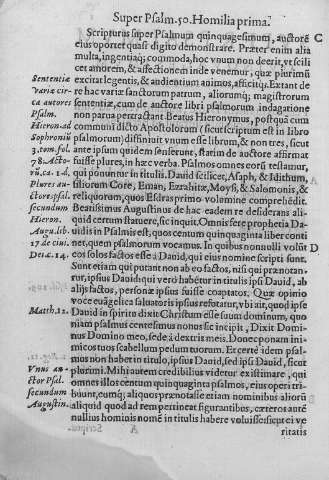 Super Psalm. 50. Homilia prima.
Scripturus super Psalmum quinquagesimum, auctorē C
eius oportet quasi digito demonstrare. Præter enim alia
multa, ingentiaq; commoda, hoc vnum non deerit, vt scili
cet amorem, & affectionem inde venemur, quæ plurimū
Sententiæ excitat legentis, & audientium animos, afficitq;. Extant de
variæ cir= re hac variæ sanctorum patrum, aliorumq; magistrorum
ca autores sententiæ, cum de auctore libri psalmorum indagatione
Psalm. non parua pertractant. Beatus Hieronymus, postquā cum
Hieron. ad communi dicto Apostolorum (sicut scriptum est in libro
Sophroniū psalmorum) diffiniuit vnum esse librum, & non tres, sicut
3. tom. fol. ante ipsum quidem senserunt, statim de auctore affirmat
78. Acto= fuisse plures, in hæc verba. Psalmos omnes eorū testamur,
rū, ca. 1. d. qui ponuntur in titulis. Dauid scilicet, Asaph, & Idithum,
Plures au= filiorum Core, Eman, Ezrahitæ, Moysi, & Salomonis, &
ctores psal. reliquorum, quos Esdras primo volumine comprehēdit.
secundum Beatissimus Augustinus de hac eadem re desiderans ali-
Hieron. quid certum statuere, sic inquit. Omnis fere prophetia Da-
Aug. lib. uidis in Psalmis est, quos centum quinquaginta liber conti
17 de ciui. net, quem psalmorum vocamus. In quibus nonnulli volūt D
Dei c. 14. eos solos factos esse à Dauid, qui eius nomine scripti sunt.
Sunt etiam qui putant non ab eo factos, nisi qui prænotan-
tur, ipsius Dauid: qui verò habentur in titulis ipsi Dauid, ab
alijs factos, personæ ipsius fuisse coaptatos. Quæ opinio
voce euāgelica saluatoris ipsius refutatur, vbi ait, quod ipse
Matth. 22. Dauid in spiritu dixit Christum esse suum dominum, quo
niam psalmus centesimus nonus sic incipit, Dixit Domi-
nus Domino meo, sede à dextris meis. Donec ponam ini-
micos tuos scabellum pedum tuorum. Et certè idem psal-
mus non habet in titulo, ipsius Dauid, sed ipsi Dauid, sicut
Vnus au= plurimi. Mihi autem credibilius videtur existimare, qui
ctor Psal. omnes illos centum quinquaginta psalmos, eius operi tri
secundum buunt, eumq; aliquos prænotasse etiam nominibus aliorū
Augustin. aliquid quod ad rem pertineat figurantibus, cæteros autē
nullius hominis nomē in titulis habere voluisse: sicut ei ve
ritatis